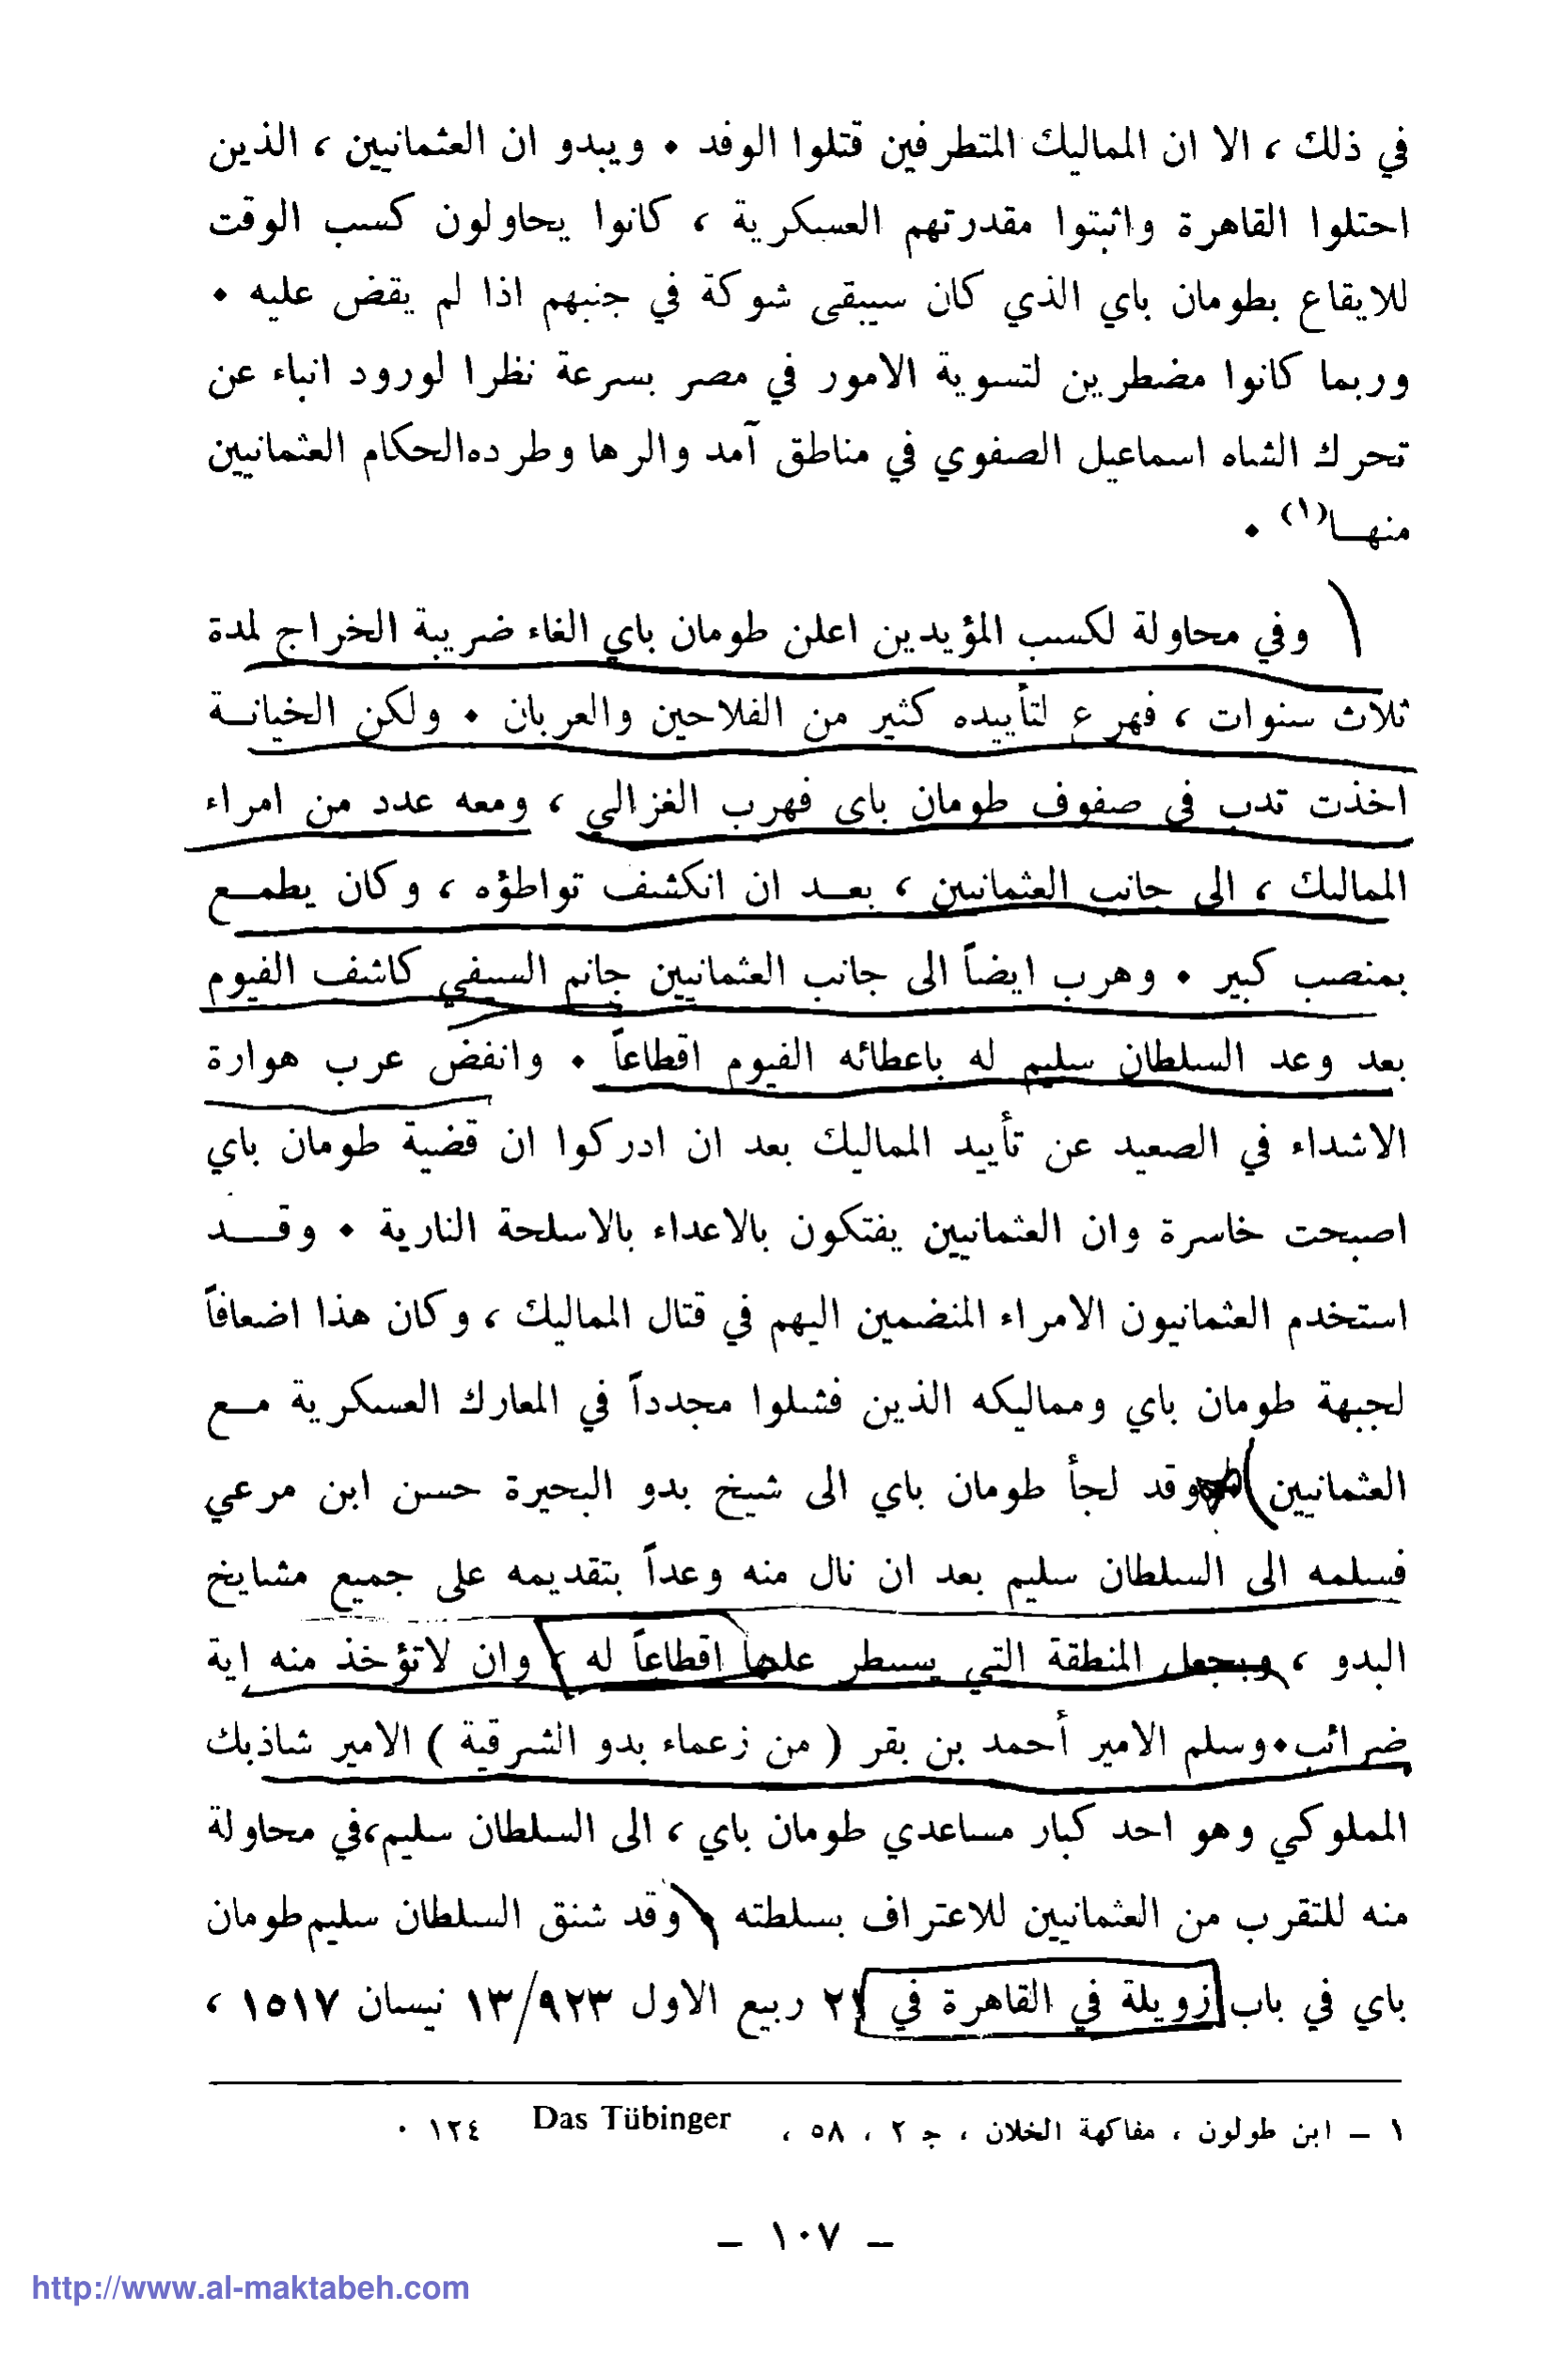 في ذلك ، الا ان المماليك المتطرفين قتلوا الوفد . ويبدو ان العثمانيين ، الذين
احتلوا القاهرة واثبتوا مقدرتهم العسكرية ، كانوا يحاولون كسب الوقت
للايقاع بطومان باي الذي كان سيبقى شوكة في جنبهم اذا لم يقض عليه .
وربما كانوا مضطرين لتسوية الامور في مصر بسرعة نظرا لورود انباء عن
تحرك الشاه اسماعيل الصفوي في مناطق آمد والرها وطرده الحكام العثمانيين
منهــا(١) .
وفي محاولة لكسب المؤيدين اعلن طومان باي الغاء ضريبة الخراج لمدة
ثلاث سنوات ، فهرع لتأييده كثير من الفلاحين والعربان . ولكن الخيانــة
اخذت تدب في صفوف طومان باي فهرب الغزالي ، ومعه عدد من امراء
المماليك ، الى جانب العثمانيين ، بعــد ان انكشف تواطؤه ، وكان يطمــع
بمنصب كبير . وهرب ايضاً الى جانب العثمانيين جانم السيفي كاشف الفيوم
بعد وعد السلطان سليم له باعطائه الفيوم اقطاعاً . وانفض عرب هوارة
الاشداء في الصعيد عن تأييد المماليك بعد ان ادركوا ان قضية طومان باي
اصبحت خاسرة وان العثمانيين يفتكون بالاعداء بالاسلحة النارية . وقــــد
استخدم العثمانيون الامراء المنضمين اليهم في قتال المماليك ، وكان هذا اضعافاً
لجبهة طومان باي ومماليكه الذين فشلوا مجدداً في المعارك العسكرية مــع
العثمانيين وقد لجأ طومان باي الى شيخ بدو البحيرة حسن ابن مرعي
فسلمه الى السلطان سليم بعد ان نال منه وعداً بتقديمه على جميع مشايخ
البدو ، وبجعل المنطقة التي يسيطر عليها اقطاعاً له ، وان لاتؤخذ منه اية
ضرائب.وسلم الامير أحمد بن بقر ( من زعماء بدو الشرقية ) الامير شاذبك
المملوكي وهو احد كبار مساعدي طومان باي ، الى السلطان سليم،في محاولة
منه للتقرب من العثمانيين للاعتراف بسلطته . وقد شنق السلطان سليم طومان
باي في باب زويلة في القاهرة في ٢١ ربيع الاول ١٣/٩٢٣ نيسان ١٥١٧ ،
١ – ابن طولون ، مفاكهة الخلان ، ج ٢ ، ٥٨ ، Das Tübinger ١٢٤ .
– ١٠٧ –
http://www.al-maktabeh.com